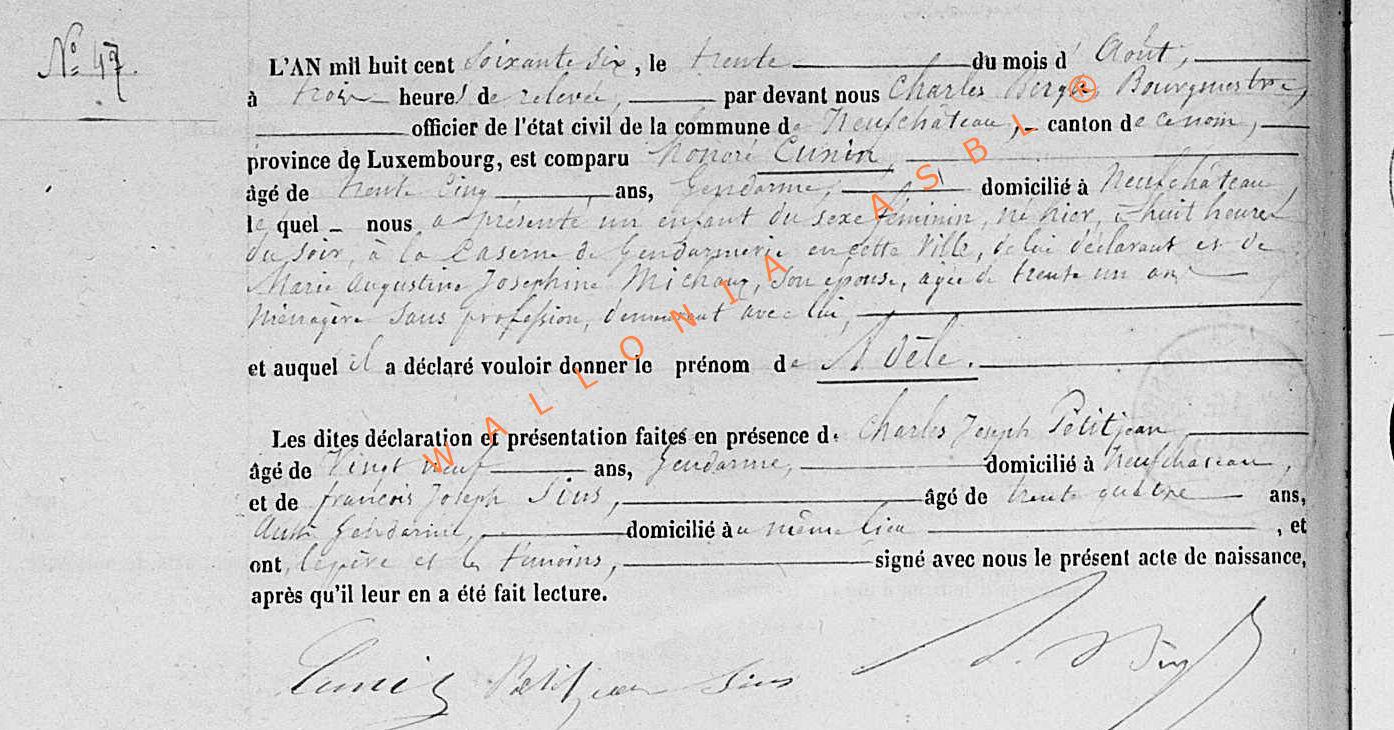 N° 47.
L'AN mil huit cent soixante six, le trente du mois d'Août,
à trois heures de relevée, par devant nous Charles Bergh, Bourgmestre,
officier de l'état civil de la commune de Neufchâteau, canton de ce nom,
province de Luxembourg, est comparu Honoré Cunin,
âgé de trente cinq ans, Gendarme, domicilié à Neufchâteau,
le quel nous a présenté un enfant du sexe féminin, né hier, à huit heures
du soir, à la Caserne de Gendarmerie en cette Ville, de lui déclarant et de
Marie Augustine Josephine Michaux, son épouse, agée de trente un ans
Ménagère sans profession, demeurant avec lui,
et auquel il a déclaré vouloir donner le prénom de Adèle.
Les dites déclaration et présentation faites en présence de Charles Joseph Petitjean,
âgé de Vingt neuf ans, Gendarme, domicilié à Neufchateau,
et de françois Joseph Sins, âgé de trente quatre ans,
Aussi Gendarme, domicilié au même lieu, et
ont, le père et les témoins, signé avec nous le présent acte de naissance,
après qu'il leur en a été fait lecture.
Cunin Petitjean Sins
WALLONIA ASBL ®